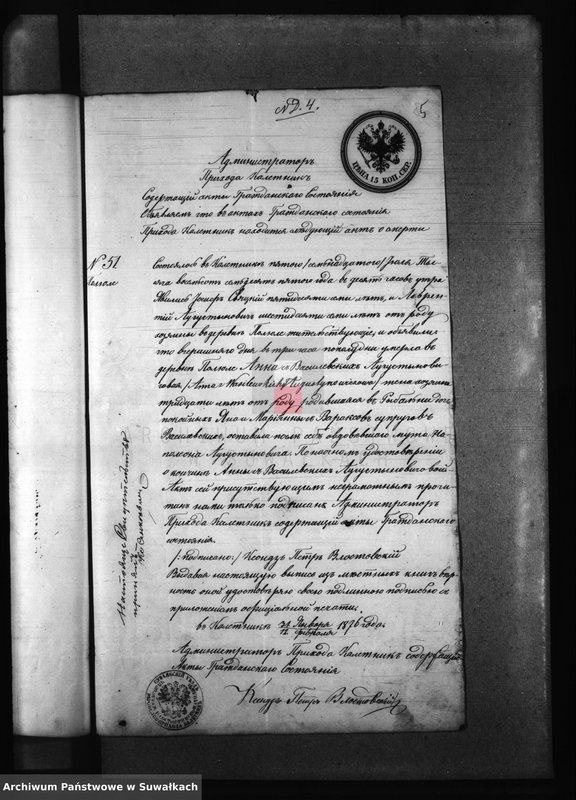 № 4.
5
ЦѢНА 15 КОП. СЕР.
Администраторъ
Прихода Калетникъ
Содержащій акты Гражданскаго Состоянія
Объявляетъ что въ актахъ Гражданскаго состоянія
Прихода Калетникъ находится слѣдующій актъ о смерти
№ 51
Состоялось въ Калетникѣ пятаго /семьнадцатаго/
тысяча восемьсотъ семьдесятъ пятаго года въ десять часовъ утра
Явились Іосифъ пятидесяти семи лѣтъ, и Лаврен-
тій Аугустыновичъ шестидесяти семи лѣтъ отъ роду
хозяины въ деревнѣ жительствующіе, и объявили
что вчерашняго дня въ три часа пополудни умерла въ
деревнѣ Анна съ Василевскихъ Аугустынови-
чова /Anna z Wasilewskich Augustynowiczowa/ жена хозяина
тридцати лѣтъ отъ роду, родившаяся въ
покойныхъ Яна и Маріянны съ супруговъ
Василевскихъ, оставивъ послѣ себя овдовѣвшаго мужа
Аугустыновича. По настоящемъ удостовѣреніи
о кончинѣ Анны съ Василевскихъ Аугустыновичовой
Актъ сей присутствующимъ неграмотнымъ прочи-
танъ нами только подписанъ Администраторъ
Прихода Калетникъ содержащій акты Гражданскаго
состоянія.
/:подписано:/ Ксендзъ Петръ Властовскій
Выдавая настоящую выпись изъ мѣстныхъ книгъ вѣр-
ность оной удостовѣряю своею подлинною подписью съ
приложеніемъ оффиціальной печати.
въ Калетникѣ Января Февраля 1876 года.
Администраторъ Прихода Калетникъ содержащій
Акты Гражданскаго Состоянія
Ксендзъ Петръ Властовскій
Настоящее Свидѣтельство
принялъ
Archiwum Państwowe w Suwałkach